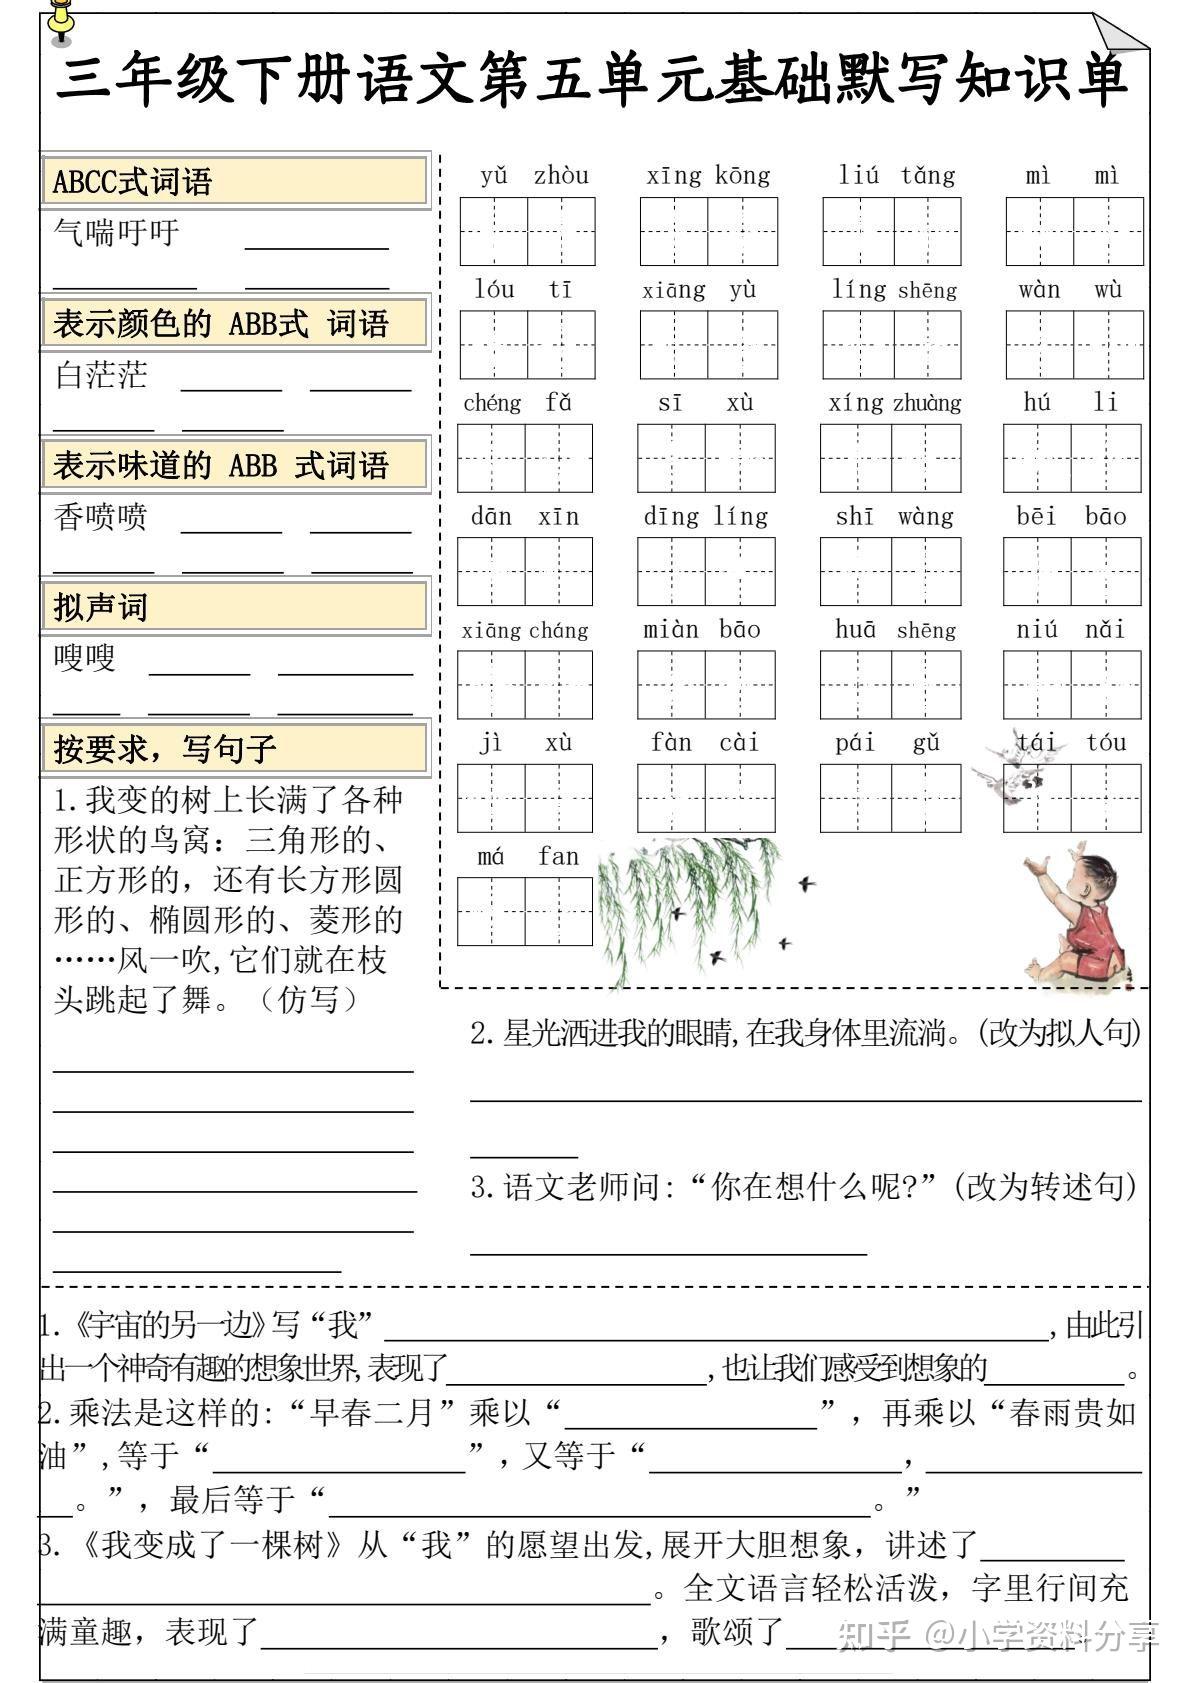 三年级下册语文第五单元基础默写知识单
ABCC式词语
气喘吁吁
表示颜色的 ABB式 词语
白茫茫
表示味道的 ABB 式词语
香喷喷
拟声词
嗖嗖
按要求，写句子
1.我变的树上长满了各种
形状的鸟窝：三角形的、
正方形的，还有长方形圆
形的、椭圆形的、菱形的
……风一吹,它们就在枝
头跳起了舞。（仿写）
yǔ zhòu xīng kōng liú tǎng mì mì
lóu tī xiāng yù líng shēng wàn wù
chéng fǎ sī xù xíng zhuàng hú li
dān xīn dīng líng shī wàng bēi bāo
xiāng cháng miàn bāo huā shēng niú nǎi
jì xù fàn cài pái gǔ tái tóu
má fan
2.星光洒进我的眼睛,在我身体里流淌。(改为拟人句)
3.语文老师问:“你在想什么呢?”(改为转述句)
1.《宇宙的另一边》写“我”,由此引
出一个神奇有趣的想象世界,表现了,也让我们感受到想象的。
2.乘法是这样的:“早春二月”乘以“”，再乘以“春雨贵如
油”,等于“”，又等于“，
。”，最后等于“。”
3.《我变成了一棵树》从“我”的愿望出发,展开大胆想象，讲述了
。全文语言轻松活泼，字里行间充
满童趣，表现了，歌颂了。
知乎 @小学资料分享